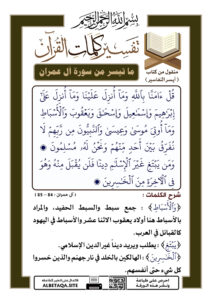 بسم الله الرحمن الرحيم
تفسير كلمات القرآن
منقول من كتاب
( أيسر التفاسير )
ما تيسر من سورة آل عمران
قُلْ ءَامَنَّا بِٱللَّهِ وَمَآ أُنزِلَ عَلَيْنَا وَمَآ أُنزِلَ عَلَىٰٓ
إِبْرَٰهِيمَ وَإِسْمَٰعِيلَ وَإِسْحَٰقَ وَيَعْقُوبَ وَٱلْأَسْبَاطِ
وَمَآ أُوتِيَ مُوسَىٰ وَعِيسَىٰ وَٱلنَّبِيُّونَ مِن رَّبِّهِمْ لَا
نُفَرِّقُ بَيْنَ أَحَدٍ مِّنْهُمْ وَنَحْنُ لَهُۥ مُسْلِمُونَ
وَمَن يَبْتَغِ غَيْرَ ٱلْإِسْلَٰمِ دِينًا فَلَن يُقْبَلَ مِنْهُ وَهُوَ
فِي ٱلْءَاخِرَةِ مِنَ ٱلْخَٰسِرِينَ
( آل عمران : 84 - 85 )
شرح الكلمات :
﴿وَٱلْأَسْبَاطِ﴾ : جمع سبط والسبط الحفيد، والمراد
بالأسباط هنا أولاد يعقوب الاثنا عشر والأسباط في اليهود
كالقبائل في العرب.
﴿يَبْتَغِ﴾ : يطلب ويريد ديناً غير الدين الإسلامي.
﴿ٱلْخَٰسِرِينَ﴾ : الهالكين بالخلد في نار جهنم والذين خسروا
كل شيء حتى أنفسهم.
ALBETAQA.SITE